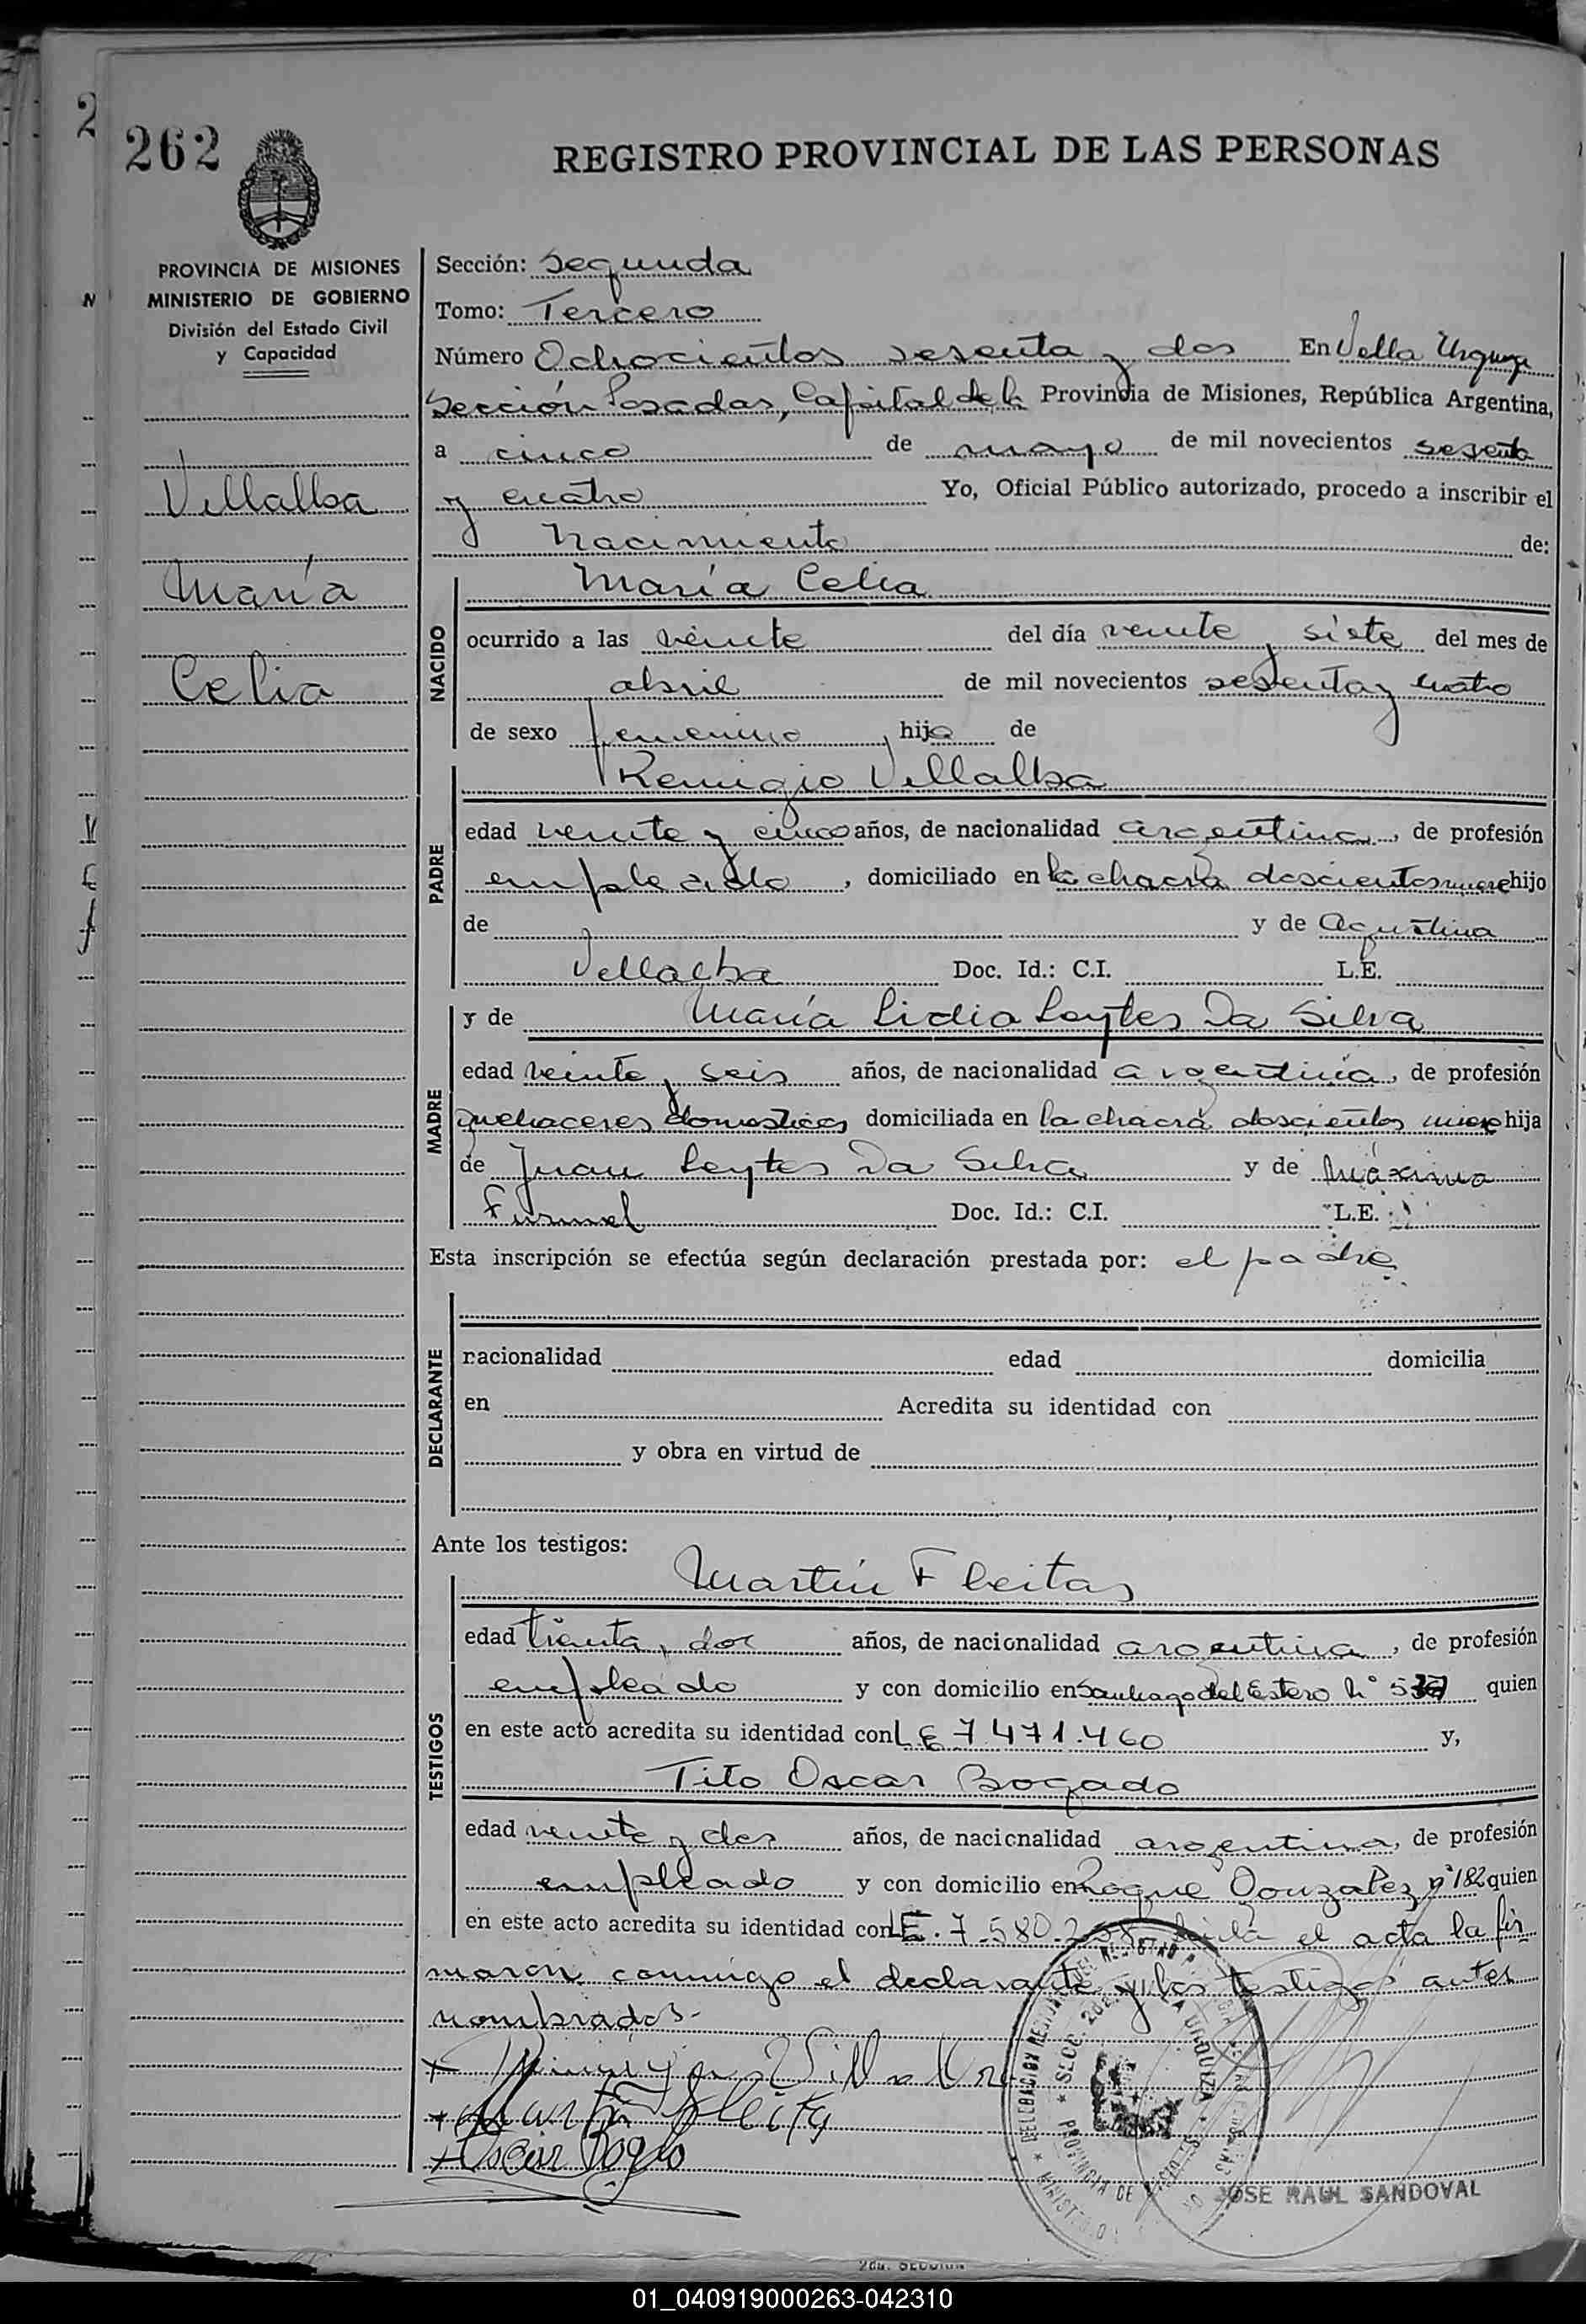 262
REGISTRO PROVINCIAL DE LAS PERSONAS
PROVINCIA DE MISIONES
MINISTERIO DE GOBIERNO
División del Estado Civil
y Capacidad
Villalba
María
Celia
Sección: Segunda
Tomo: Tercero
Número Ochocientos sesenta y dos En Villa Urquiza
Sección Posadas, Capital de la Provincia de Misiones, República Argentina,
a cinco de mayo de mil novecientos sesenta
y cuatro Yo, Oficial Público autorizado, procedo a inscribir el
Nacimiento de:
NACIDO
María Celia
ocurrido a las veinte del día veinte y siete del mes de
abril de mil novecientos sesenta y cuatro
de sexo femenino, hija de
PADRE
Remigio Villalba
edad veinte y cinco años, de nacionalidad argentina, de profesión
empleado, domiciliado en la chacra doscientos nueve hijo
de y de Agustina
Villalba Doc. Id.: C.I. L.E.
MADRE
y de María Lidia Leytes Da Silva
edad veinte y seis años, de nacionalidad argentina, de profesión
quehaceres domesticos domiciliada en la chacra doscientos nueve hija
de Juan Leytes Da Silva y de Máxima
Doc. Id.: C.I. L.E.
Esta inscripción se efectúa según declaración prestada por: el padre
DECLARANTE
nacionalidad edad domicilia
en Acredita su identidad con
y obra en virtud de
Ante los testigos:
TESTIGOS
Martín Fleitas
edad treinta y dos años, de nacionalidad argentina, de profesión
empleado y con domicilio en Santiago del Estero N° quien
en este acto acredita su identidad con L E 7.471.460 y,
Tito Oscar Bogado
edad veinte y dos años, de nacionalidad argentina, de profesión
empleado y con domicilio en Roque Gonzalez n° 182 quien
en este acto acredita su identidad con L E. 7.580.258 leída el acta la fir
maron conmigo el declarante y los testigos antes
nombrados.-
Villalba
Martín Fleita
Oscar Bogdo
SECC. 2da. VILLA URQUIZA
PROVINCIA DE MISIONES
JOSE RAUL SANDOVAL
2da. SECCION
01_040919000263-042310